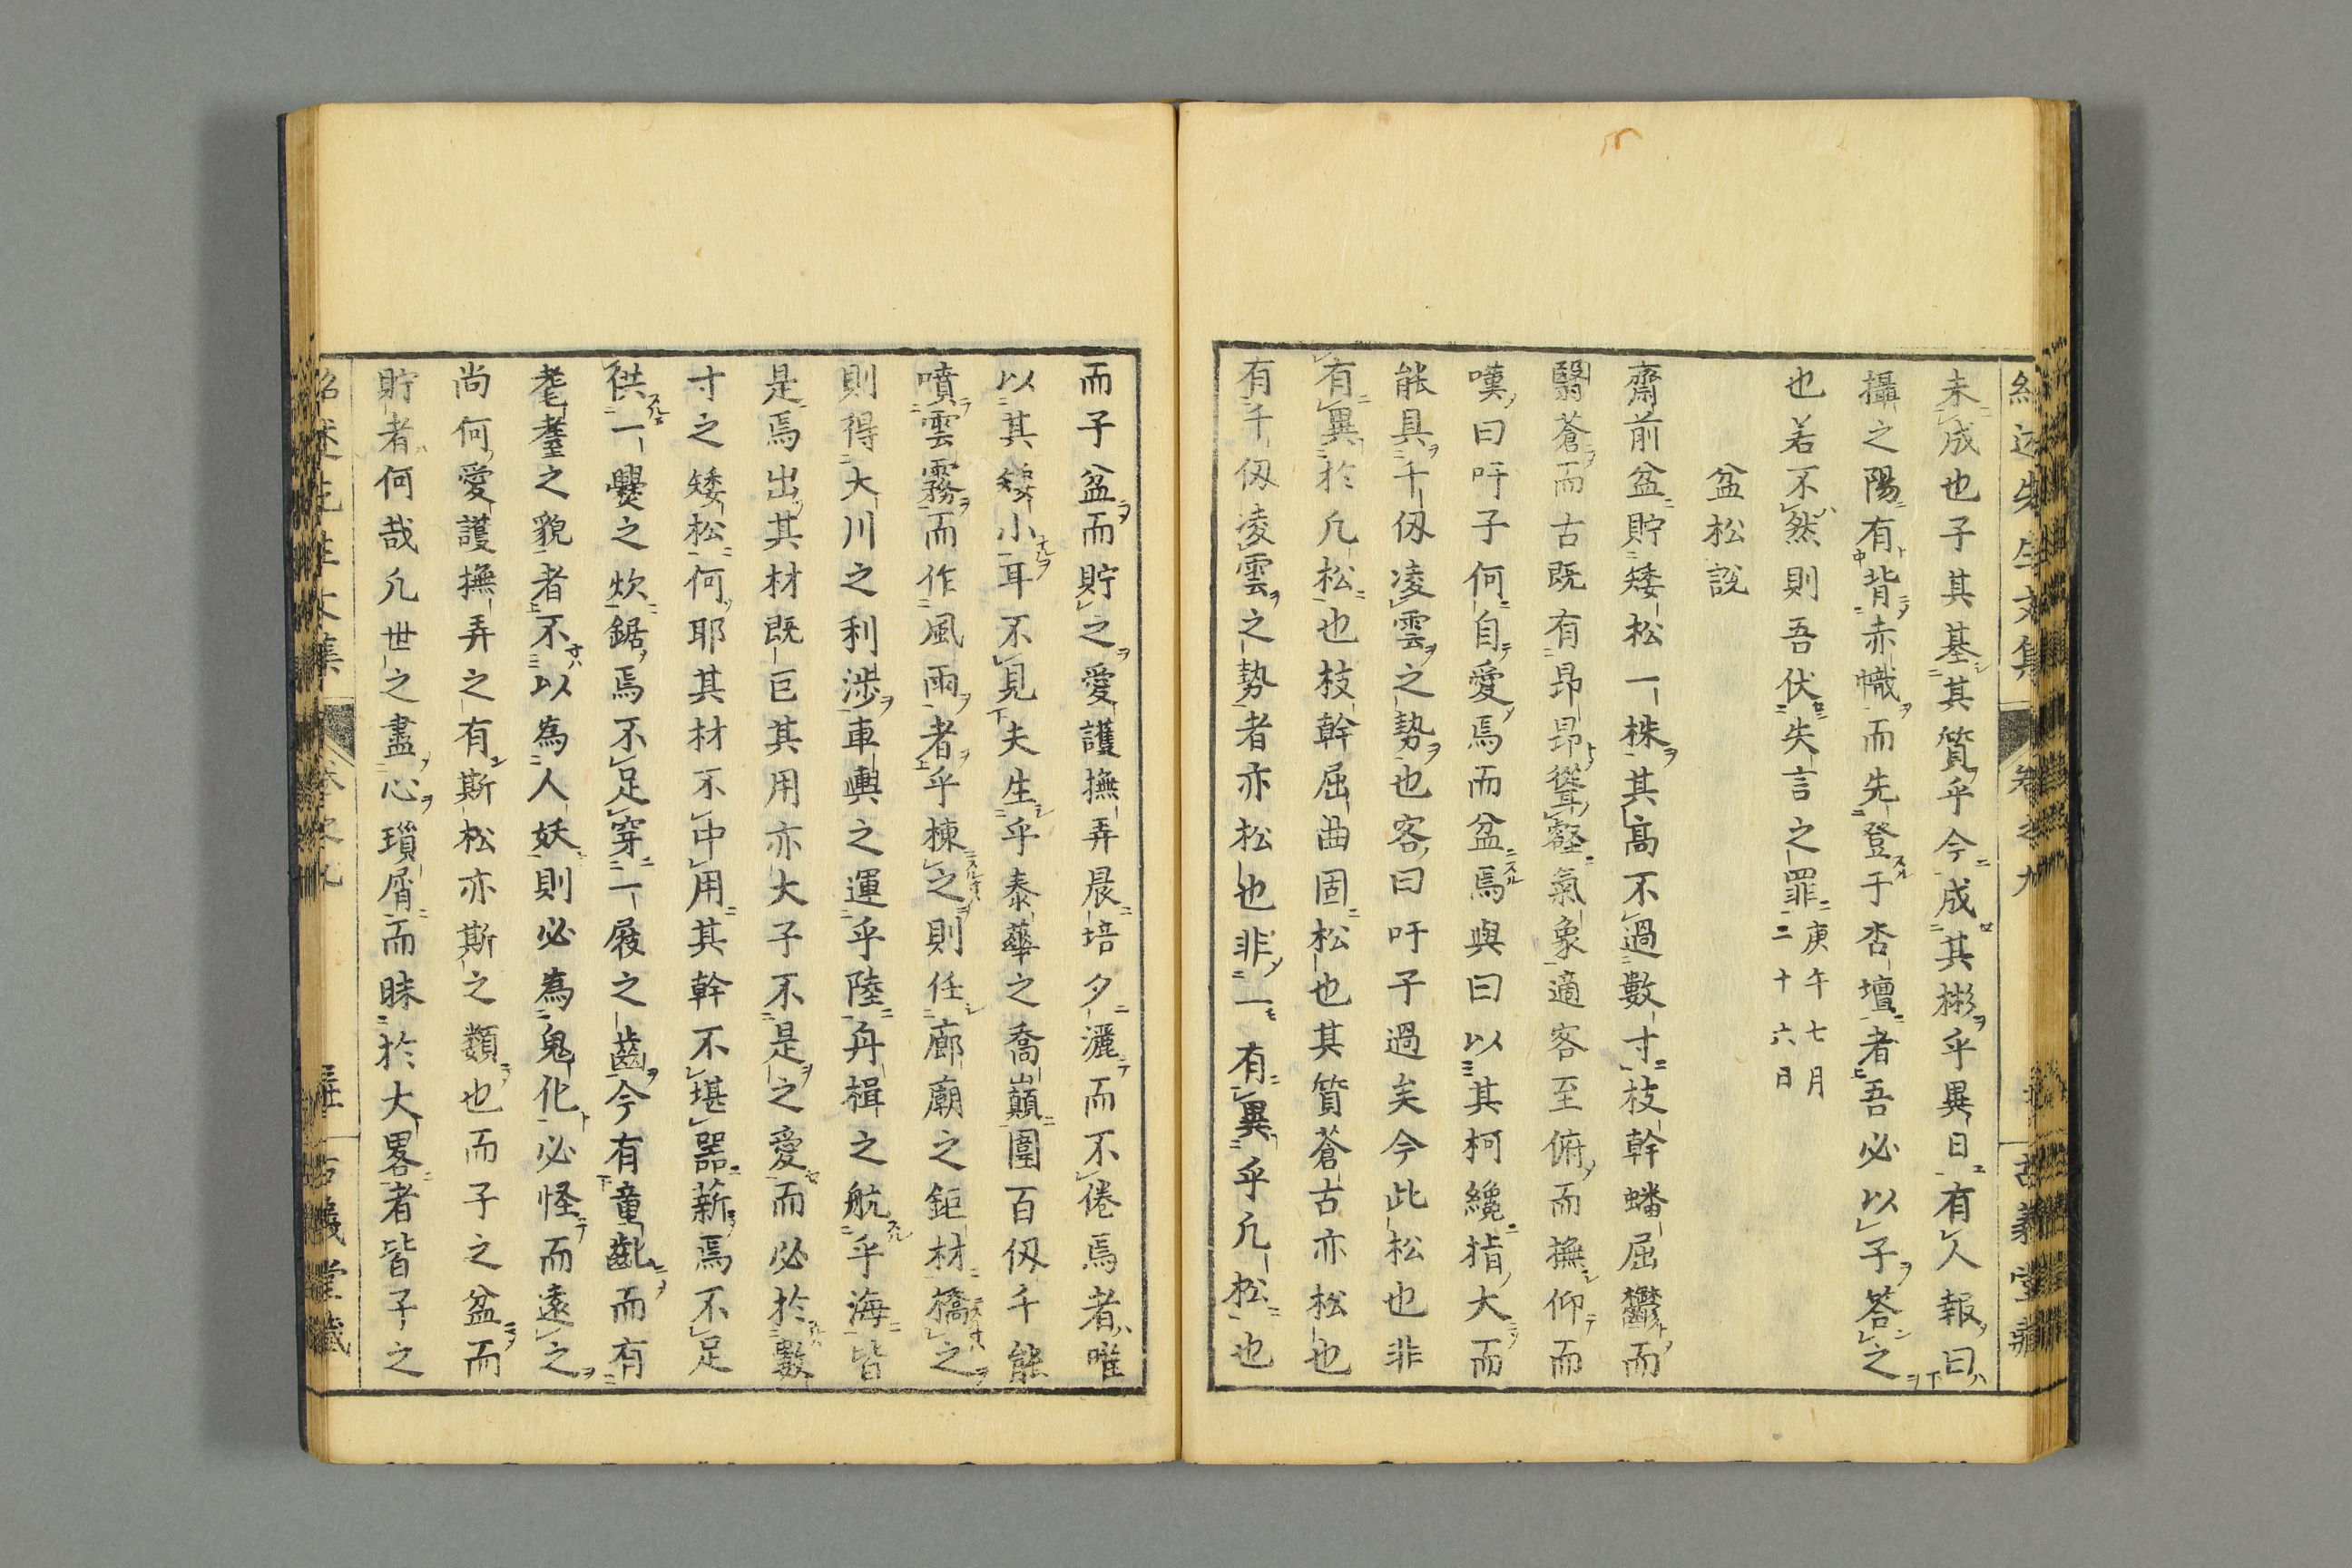 未成也子其基其質乎今成其彬乎異日有人報曰
攝之陽有背赤幟而先登于杏壇者吾必以子答之
也若不然則吾伏失言之罪庚午七月
二十六日
盆松說
齋前盆貯矮松一株其高不過數寸枝幹蟠屈鬱而
翳蒼而古既有昂昂聳壑氣象適客至俯而撫仰而
嘆曰吁子何自愛焉而盆焉與曰以其柯纔指大而
能具千仭凌雲之勢也客曰吁子過矣今此松也非
有異於凢松也枝幹屈曲固松也其質蒼古亦松也
有千仭凌雲之勢者亦松也非一有異乎凢松也
而子盆而貯之愛護撫弄晨培夕灑而不倦焉者唯
以其矮小耳不見夫生乎泰華之喬巔圍百仭千能
噴雲霧而作風雨者乎棟之則任廊廟之鉅材橋之
則得大川之利涉車輿之運乎陸舟楫之航乎海皆
是焉出其材既巨其用亦大子不是之愛而必於數
寸之矮松何耶其材不中用其幹不堪器薪焉不足
供一爨之炊鋸焉不足穿一屐之齒今有童齔而有
耄耋之貌者不以為人妖則必為鬼化必怪而遠之
尚何愛護撫弄之有斯松亦斯之類也而子之盆而
貯者何哉凢世之盡心瑣屑而昧於大畧者皆子之
紹述先生文集 卷之九 古義堂藏